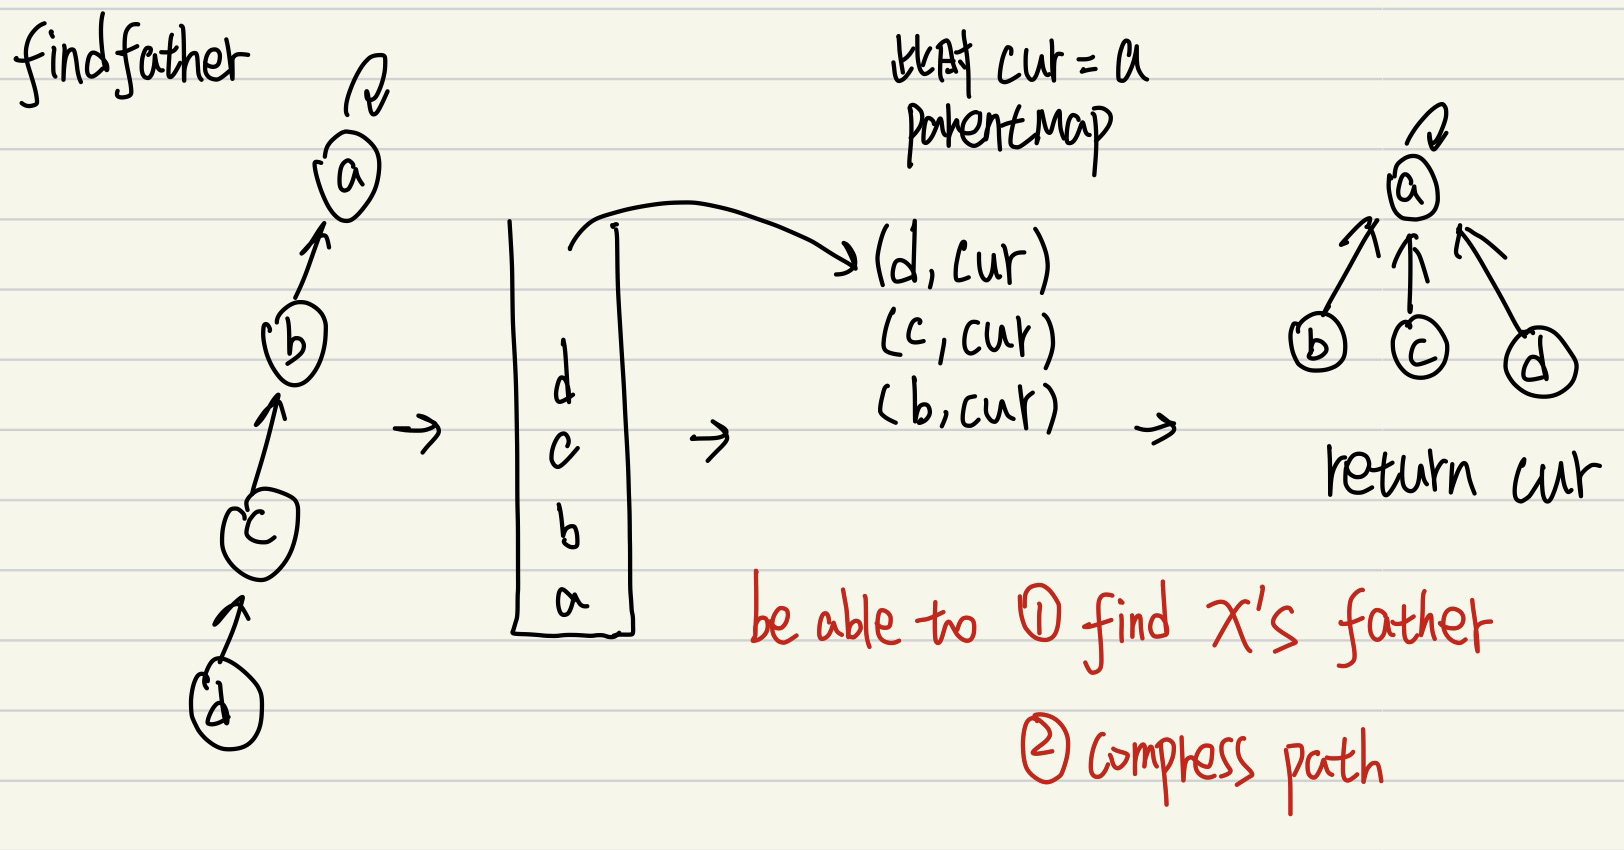 findfather
此时 cur = a
parentMap
a
b
c
d
d
c
b
a
(d, cur)
(c, cur)
(b, cur)
a
b
c
d
return cur
be able to ① find X's father
② compress path